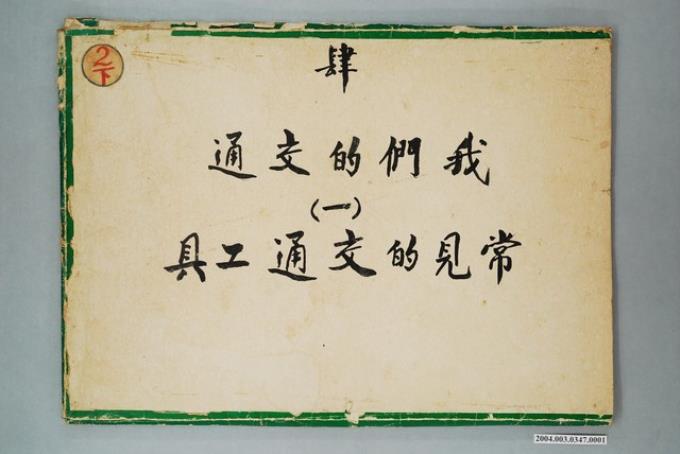 2下
肆
我們的交通
(一)
常見的交通工具
2004.003.0347.0001